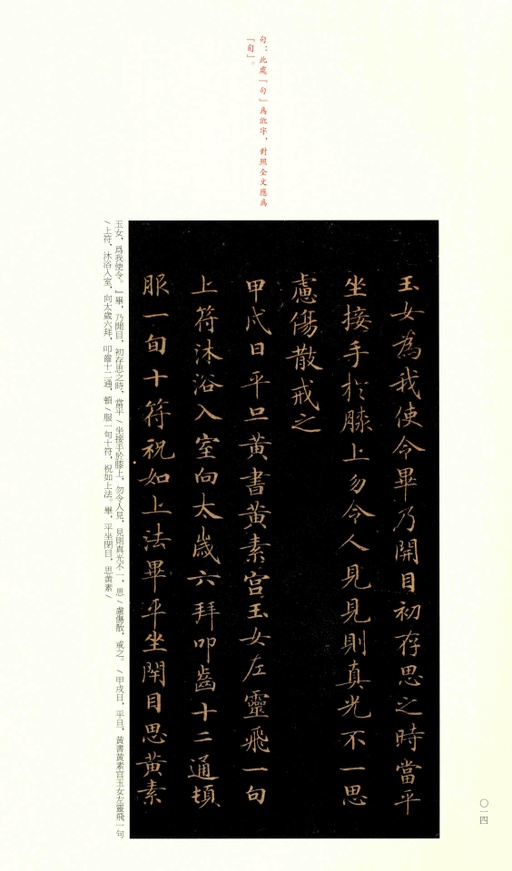 句：此處「句」為訛字，對照全文應為
「旬」。
玉女為我使令畢乃開目初存思之時當平
坐接手於膝上勿令人見見則真光不一思
慮傷散戒之
甲戌日平旦黃書黃素宮玉女左靈飛一句
上符沐浴入室向太歲六拜叩齒十二通頓
服一旬十符祝如上法畢平坐閉目思黃素
玉女，為我使令。」畢，乃開目，初存思之時，當平／坐接手於膝上，勿令人見，見則真光不一，思／慮傷散，戒之。／甲戌日，平旦，黃書黃素宮玉女左靈飛一句
／上符，沐浴入室，向太歲六拜，叩齒十二通，頓／服一旬十符，祝如上法。畢，平坐閉目，思黃素／
〇一四